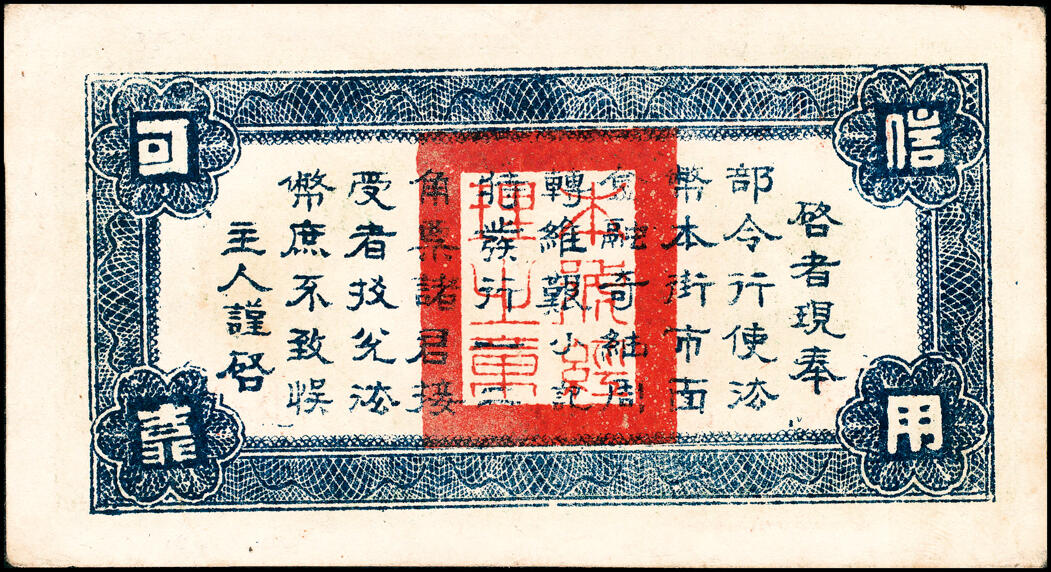 信用
可靠
啓者現奉
部令行使法
幣本街市面
金融奇絀周
轉維艱小記
特發行一二
角票諸君接
受者投兌法
幣庶不致悞
主人謹啓
本號經
理之章